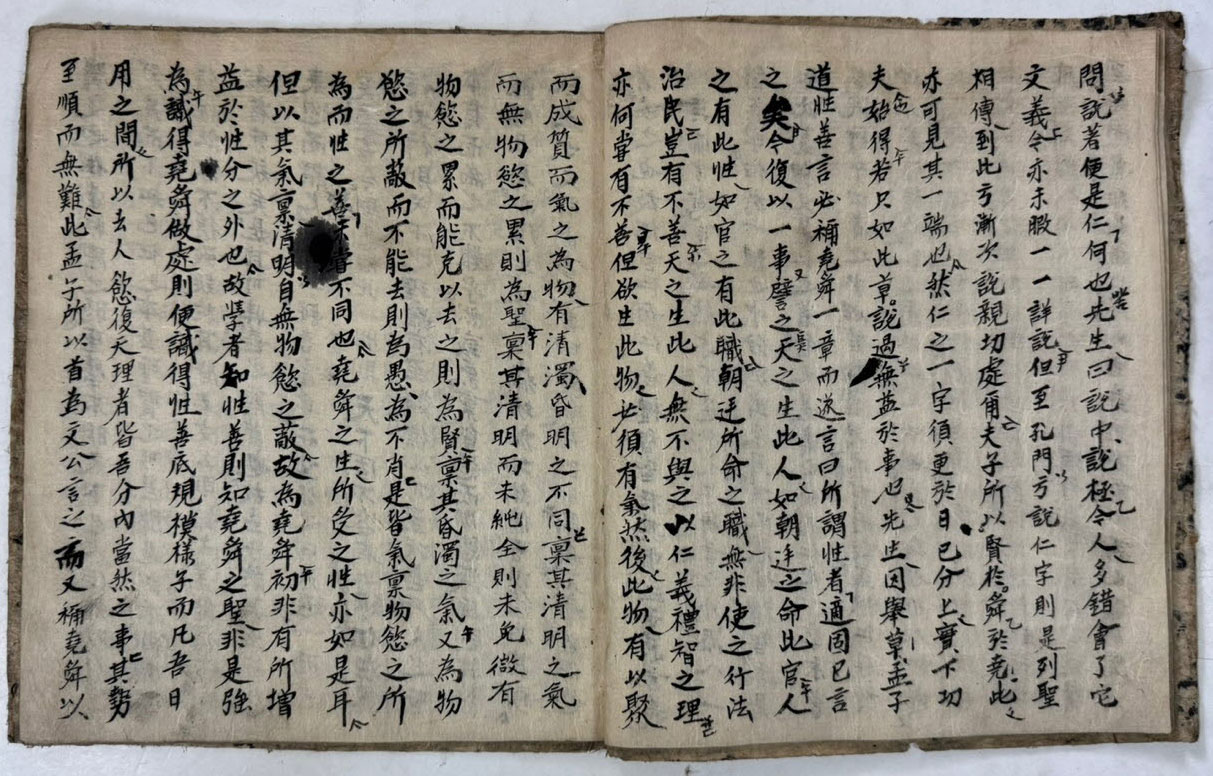 問說著便是仁何也先生曰說中說極令人多錯會了它
文義今亦未暇一一詳說但至孔門方說仁字則是列聖
相傳到此方漸次說親切處甭夫子所以賢於舜於堯此
亦可見其一端也然仁之一字須更於日已分上實下功
夫始得若只如此草說過無益於事也先生因舉草孟子
道性善言必稱堯舜一章而遂言曰所謂性者適固已言
之矣今復以一事譬之天之生此人如朝廷之命此官人
之有此性如官之有此職朝廷所命之職無非使之行法
治民豈有不善天之生此人無不與之以仁義禮智之理
亦何嘗有不善但欲生此物必須有氣然後此物有以聚
而成質而氣之為物有清濁昏明之不同稟其清明之氣
而無物慾之累則為聖稟其清明而未純全則未免微有
物慾之累而能克以去之則為賢稟其昏濁之氣又為物
慾之所蔽而不能去則為愚為不肖是皆氣稟物慾之所
為而性之善未嘗不同也堯舜之生所受之性亦如是耳
但以其氣稟清明自無物慾之蔽故為堯舜初非有所增
益於性分之外也故學者知性善則知堯舜之聖非是強
為識得堯舜做處則便識得性善底規模樣子而凡吾日
用之間所以去人慾復天理者皆吾分內當然之事其勢
至順而無難此孟子所以首為文公言之而又稱堯舜以